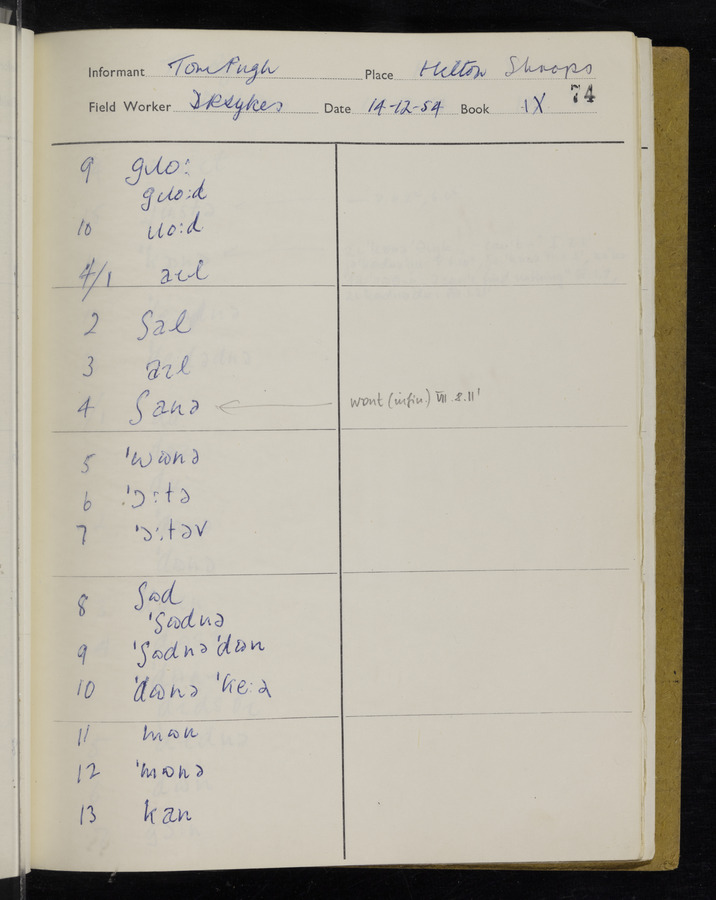 Informant Tom Pugh Place Hilton Shrops
Field Worker D R Sykes Date 14-12-54 Book IX 74
9 gɹoː
gɹoːd
10 ɹoːd
4/1 aɪl
2 ʃal
3 aɪl
4 ʃanə want (infin.) VIII.2.11'
5 'wɒnə
6 'ɔːtə
7 'ɔːtəv
8 ʃɷd
'ʃɷdnə
9 'ʃɷdnə 'dɷn
10 'dɷnə 'keːə
11 mɷn
12 'mɷnə
13 kan